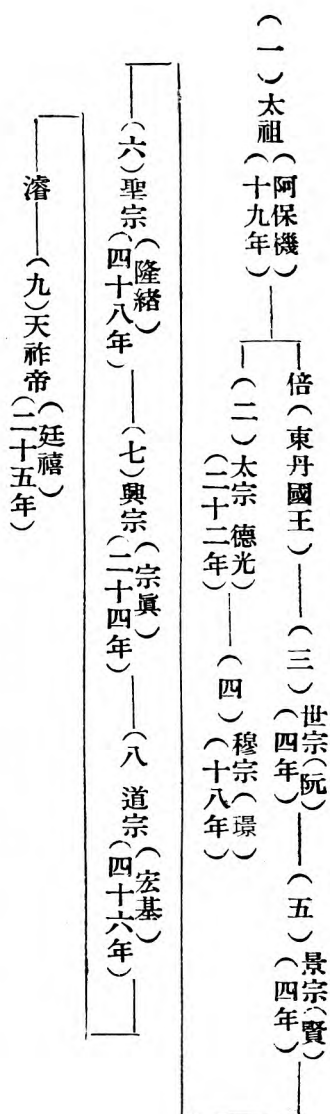 （一）太祖（阿保機）（十九年）
倍（東丹國王）（三）世宗（阮）（四年）（五）景宗（賢）（四年）
（二）太宗 德光）（二十二年）（四）穆宗（璟）（十八年）
（六）聖宗（隆緒）（四十八年）（七）興宗（宗眞）（二十四年）（八 道宗（宏基）（四十六年）
濬（九）天祚帝（廷禧）（二十五年）